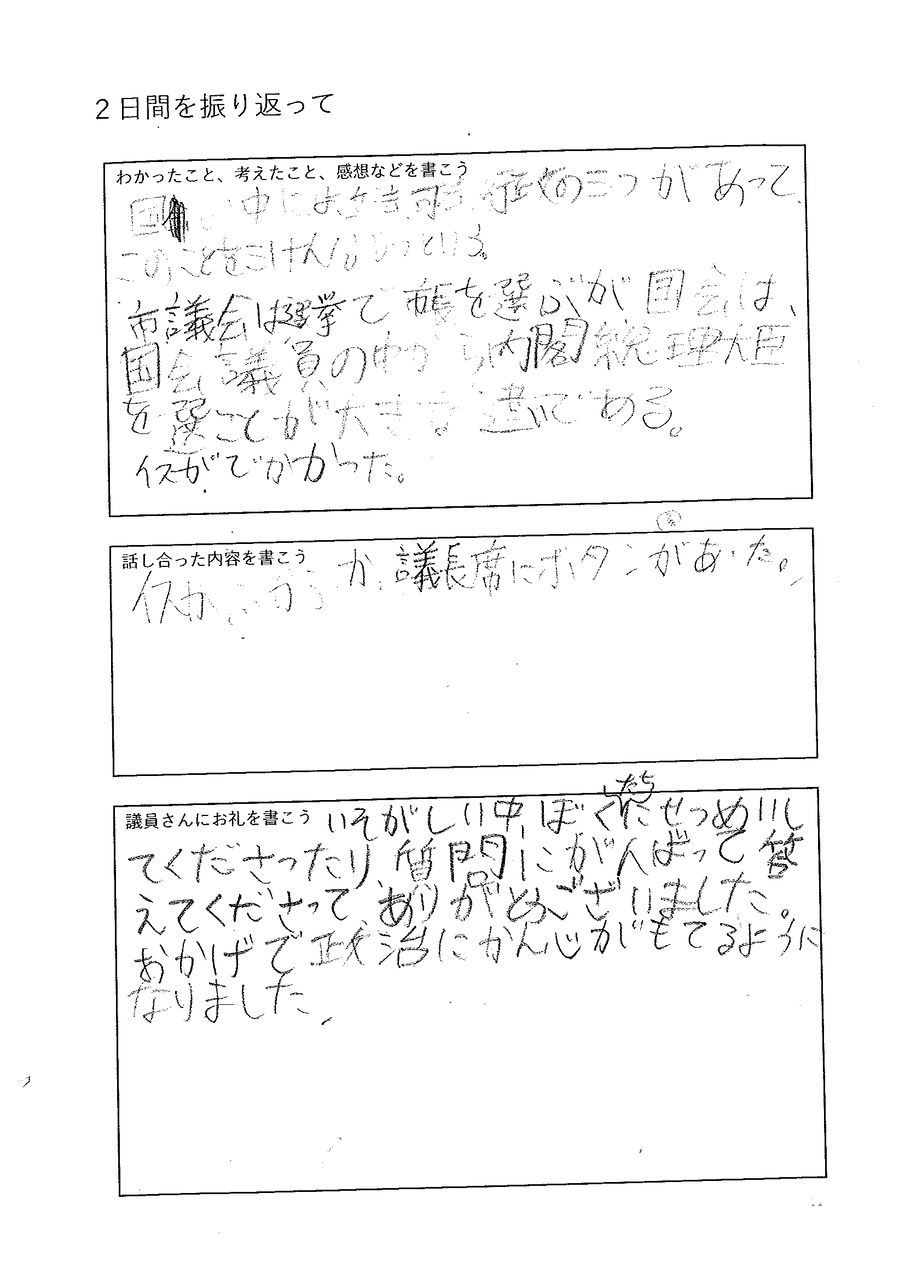 2日間を振り返って
わかったこと、考えたこと、感想などを書こう
国 中には 司法 行政の三つがあって、
このことをさんけん という。
市議会は選挙で市長を選ぶが国会は、
国会議員の中から内閣総理大臣
を選ことが大きな違いである。
イスがでかかった。
話し合った内容を書こう
イスが か 議長席にボタンがあった。
議員さんにお礼を書こう
いそがしい中ぼくたちにせつめいし
てくださったり、質問にがんばって答
えてくださって、ありがとうございました。
おかげで政治にかん心がもてるように
なりました。